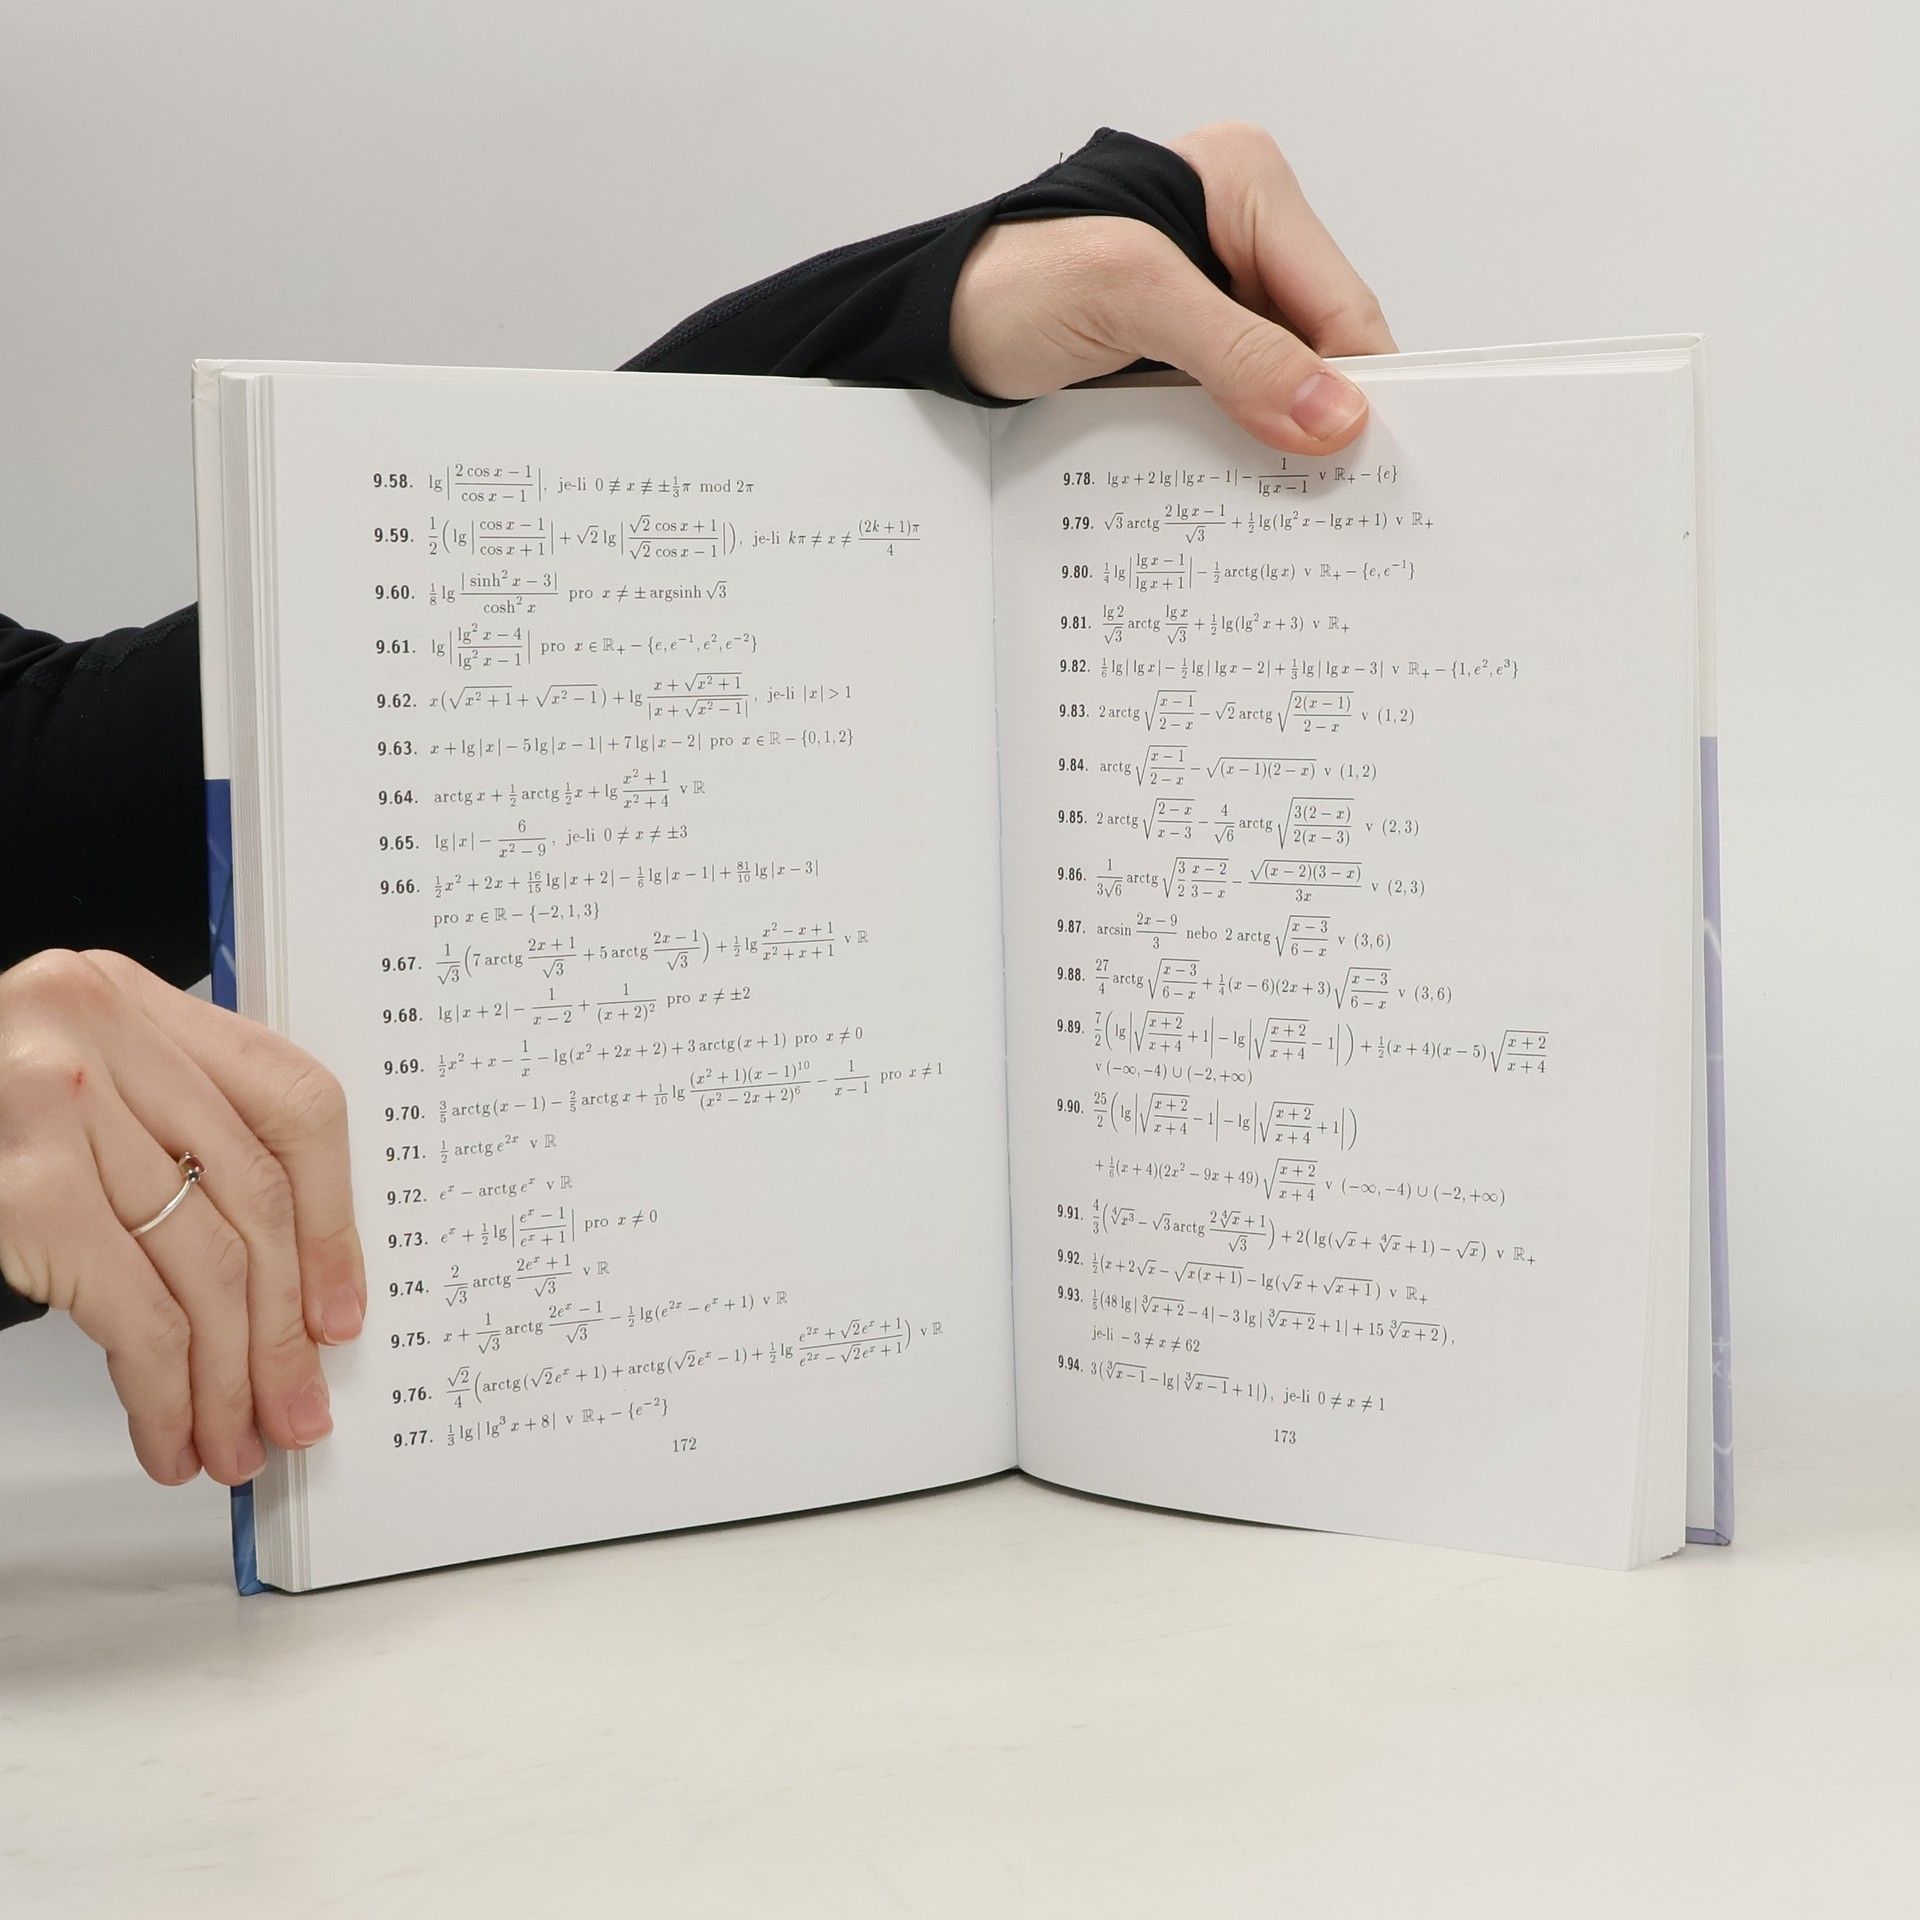 9.58. lg|(2 cos x − 1)/(cos x − 1)|, je-li 0 ≢ x ≢ ±⅓π mod 2π
9.59. 1/2(lg|(cos x − 1)/(cos x + 1)| + √2 lg|(√2 cos x + 1)/(√2 cos x − 1)|), je-li kπ ≠ x ≠ (2k + 1)π/4
9.60. 1/8 lg |sinh² x − 3|/cosh² x pro x ≠ ± argsinh √3
9.61. lg|(lg² x − 4)/(lg² x − 1)| pro x ∈ ℝ₊ − {e, e⁻¹, e², e⁻²}
9.62. x(√(x² + 1) + √(x² − 1)) + lg (x + √(x² + 1))/|x + √(x² − 1)|, je-li |x| > 1
9.63. x + lg|x| − 5 lg|x − 1| + 7 lg|x − 2| pro x ∈ ℝ − {0, 1, 2}
9.64. arctg x + 1/2 arctg 1/2 x + lg (x² + 1)/(x² + 4) v ℝ
9.65. lg|x| − 6/(x² − 9), je-li 0 ≠ x ≠ ±3
9.66. 1/2 x² + 2x + 16/15 lg|x + 2| − 1/6 lg|x − 1| + 81/10 lg|x − 3|
pro x ∈ ℝ − {−2, 1, 3}
9.67. 1/√3 (7 arctg (2x + 1)/√3 + 5 arctg (2x − 1)/√3) + 1/2 lg (x² − x + 1)/(x² + x + 1) v ℝ
9.68. lg|x + 2| − 1/(x − 2) + 1/(x + 2)² pro x ≠ ±2
9.69. 1/2 x² + x − 1/x − lg(x² + 2x + 2) + 3 arctg(x + 1) pro x ≠ 0
9.70. 3/5 arctg(x − 1) − 2/5 arctg x + 1/10 lg (x² + 1)(x − 1)¹⁰/(x² − 2x + 2)⁶ − 1/(x − 1) pro x ≠ 1
9.71. 1/2 arctg e²ˣ v ℝ
9.72. eˣ − arctg eˣ v ℝ
9.73. eˣ + 1/2 lg|(eˣ − 1)/(eˣ + 1)| pro x ≠ 0
9.74. 2/√3 arctg (2eˣ + 1)/√3 v ℝ
9.75. x + 1/√3 arctg (2eˣ − 1)/√3 − 1/2 lg(e²ˣ − eˣ + 1) v ℝ
9.76. √2/4 (arctg(√2eˣ + 1) + arctg(√2eˣ − 1) + 1/2 lg (e²ˣ + √2eˣ + 1)/(e²ˣ − √2eˣ + 1)) v ℝ
9.77. 1/3 lg|lg³ x + 8| v ℝ₊ − {e⁻²}
172
9.78. lg x + 2 lg|lg x − 1| − 1/(lg x − 1) v ℝ₊ − {e}
9.79. √3 arctg (2 lg x − 1)/√3 + 1/2 lg(lg² x − lg x + 1) v ℝ₊
9.80. 1/4 lg|(lg x − 1)/(lg x + 1)| − 1/2 arctg(lg x) v ℝ₊ − {e, e⁻¹}
9.81. lg 2/√3 arctg lg x/√3 + 1/2 lg(lg² x + 3) v ℝ₊
9.82. 1/6 lg|lg x| − 1/2 lg|lg x − 2| + 1/3 lg|lg x − 3| v ℝ₊ − {1, e², e³}
9.83. 2 arctg √((x − 1)/(2 − x)) − √2 arctg √(2(x − 1)/(2 − x)) v (1, 2)
9.84. arctg √((x − 1)/(2 − x)) − √((x − 1)(2 − x)) v (1, 2)
9.85. 2 arctg √((2 − x)/(x − 3)) − 4/√6 arctg √(3(2 − x)/2(x − 3)) v (2, 3)
9.86. 1/(3√6) arctg √(3/2 (x − 2)/(3 − x)) − √((x − 2)(3 − x))/3x v (2, 3)
9.87. arcsin (2x − 9)/3 nebo 2 arctg √((x − 3)/(6 − x)) v (3, 6)
9.88. 27/4 arctg √((x − 3)/(6 − x)) + 1/4(x − 6)(2x + 3)√((x − 3)/(6 − x)) v (3, 6)
9.89. 7/2 (lg|√((x + 2)/(x + 4)) + 1| − lg|√((x + 2)/(x + 4)) − 1|) + 1/2(x + 4)(x − 5)√((x + 2)/(x + 4))
v (−∞, −4) ∪ (−2, +∞)
9.90. 25/2 (lg|√((x + 2)/(x + 4)) − 1| − lg|√((x + 2)/(x + 4)) + 1|)
+ 1/6(x + 4)(2x² − 9x + 49)√((x + 2)/(x + 4)) v (−∞, −4) ∪ (−2, +∞)
9.91. 4/3 (∜x³ − √3 arctg (2∜x + 1)/√3) + 2(lg(√x + ∜x + 1) − √x) v ℝ₊
9.92. 1/2(x + 2√x − √(x(x + 1)) − lg(√x + √(x + 1)) v ℝ₊
9.93. 1/5(48 lg|∛(x + 2) − 4| − 3 lg|∛(x + 2) + 1| + 15 ∛(x + 2)),
je-li −3 ≠ x ≠ 62
9.94. 3(∛(x − 1) − lg|∛(x − 1) + 1|), je-li 0 ≠ x ≠ 1
173